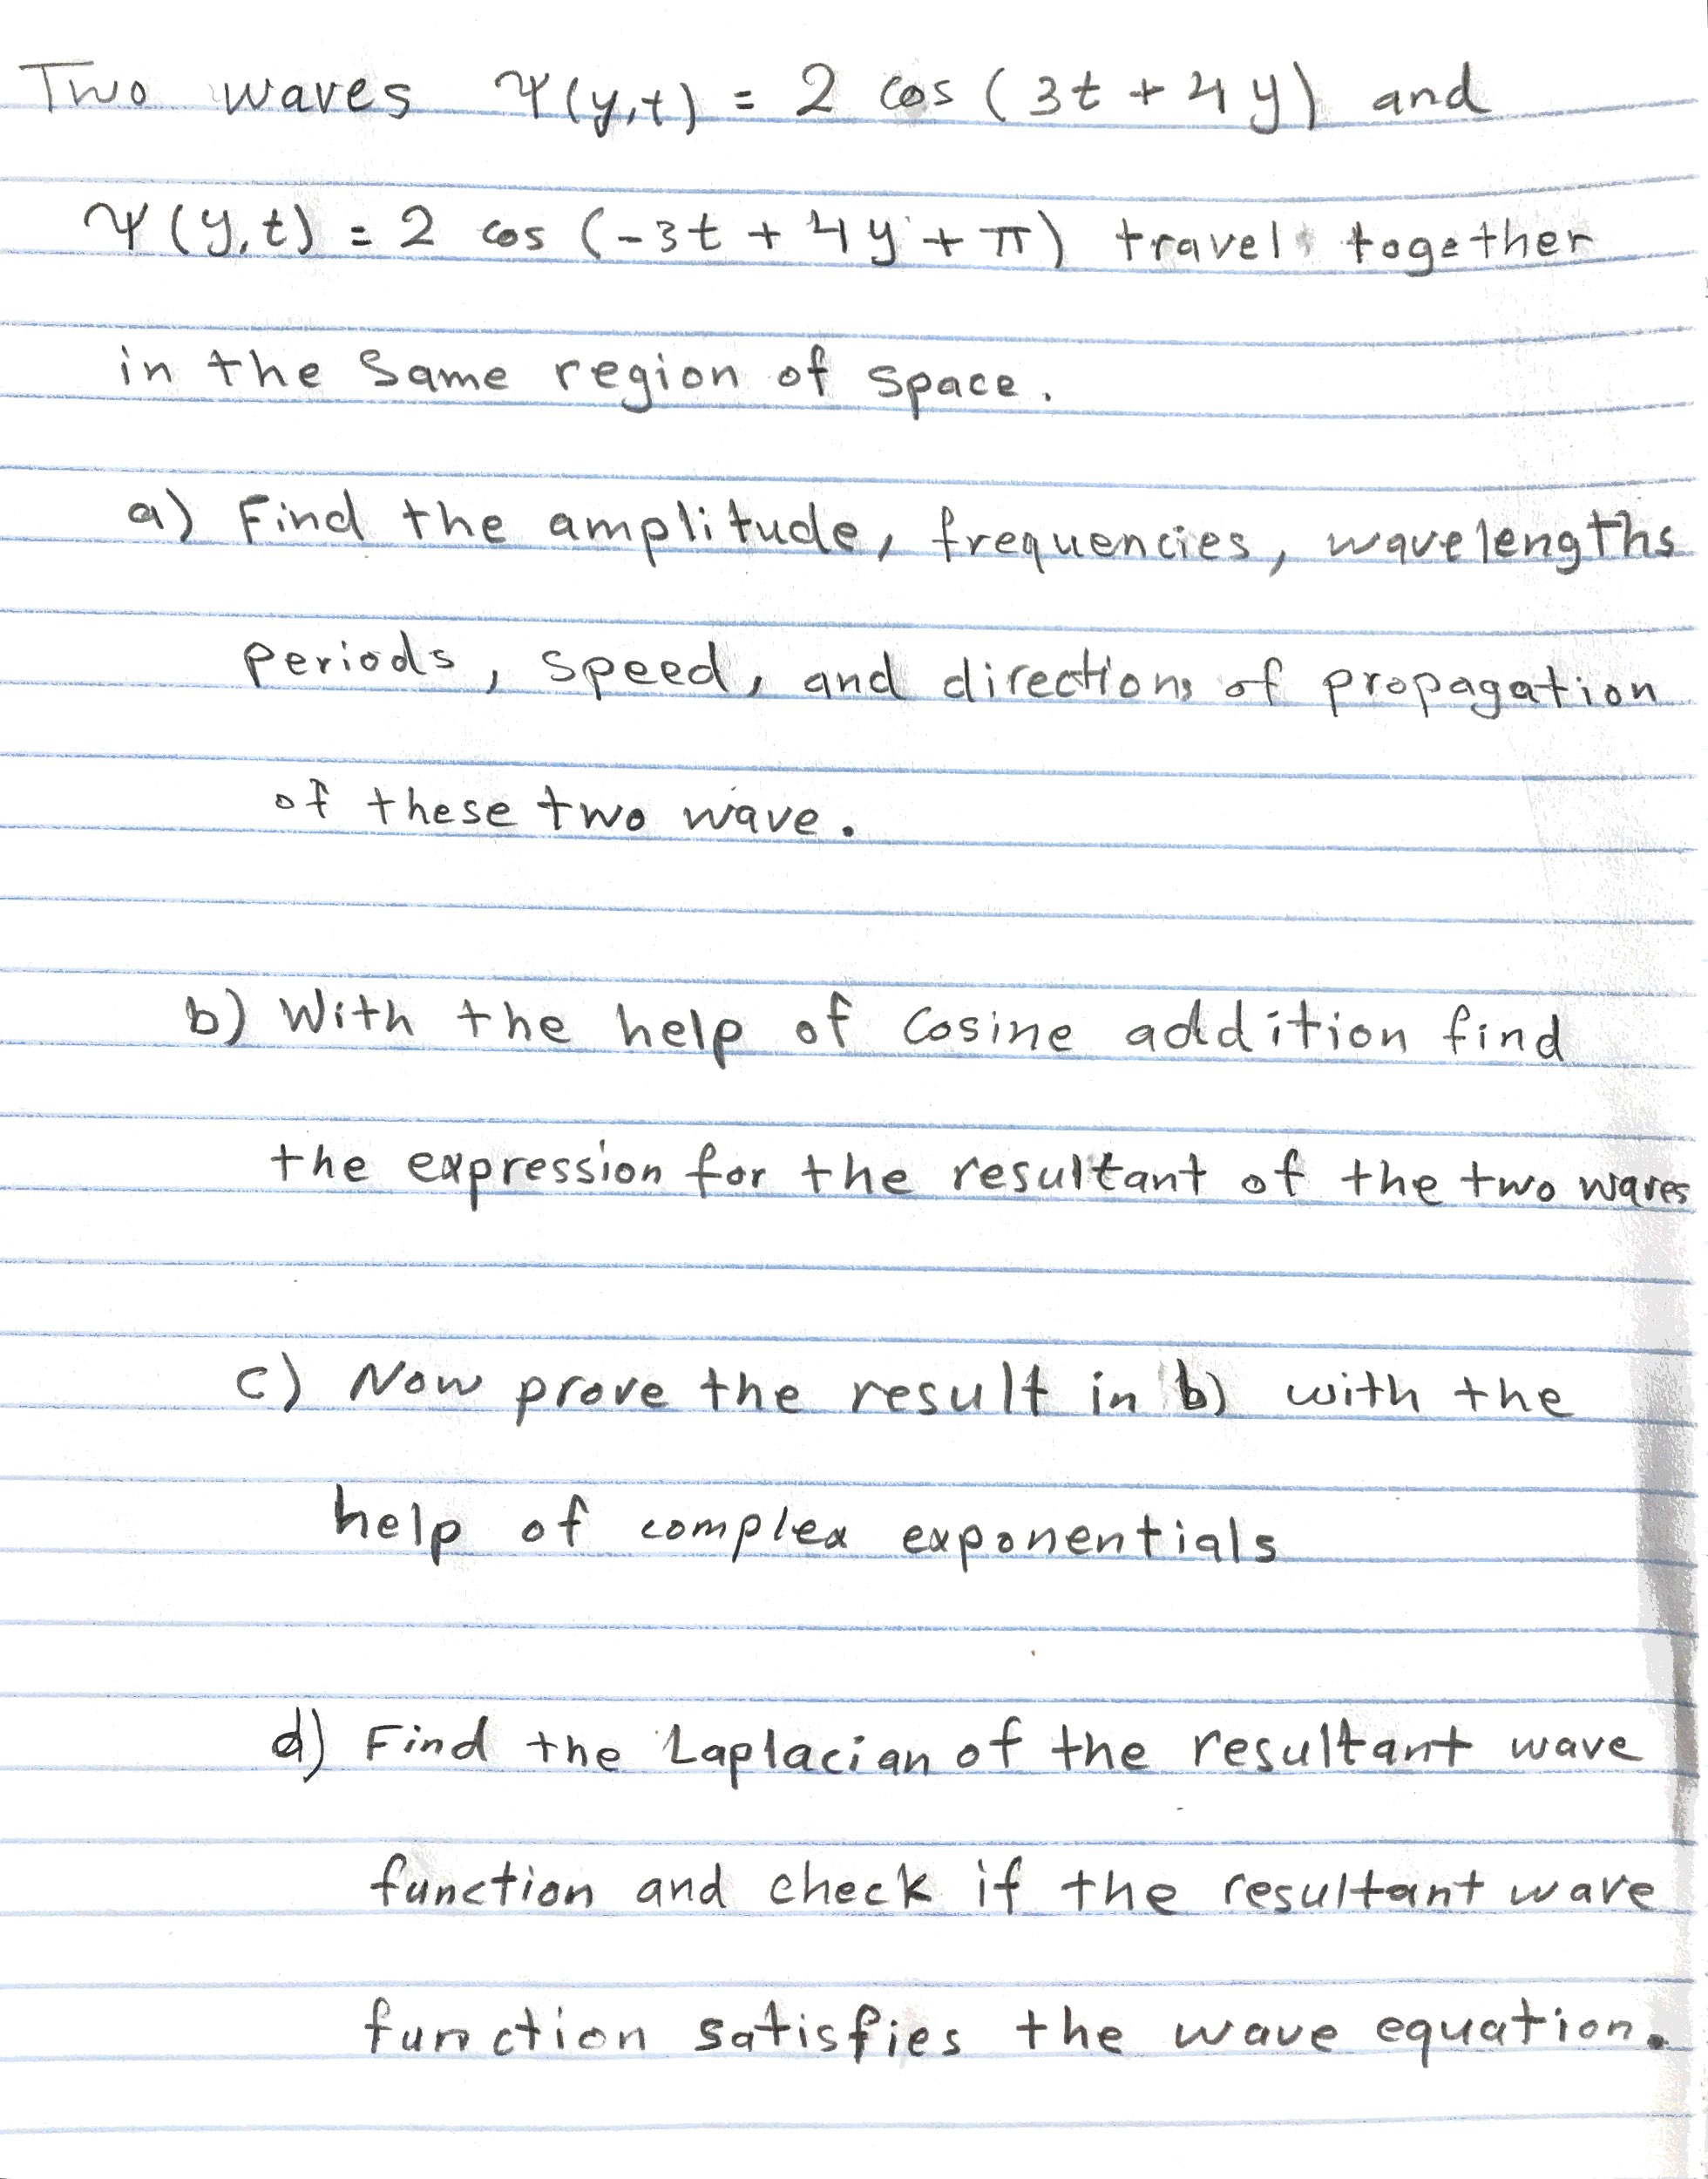 Two waves Ψ(y,t) = 2 cos (3t + 4y) and
Ψ(y,t) = 2 cos (-3t + 4y + π) travel together
in the same region of space.
a) Find the amplitude, frequencies, wavelengths
periods, speed, and directions of propagation
of these two wave.
b) With the help of cosine addition find
the expression for the resultant of the two waves
c) Now prove the result in b) with the
help of complex exponentials
d) Find the Laplacian of the resultant wave
function and check if the resultant wave
function satisfies the wave equation.